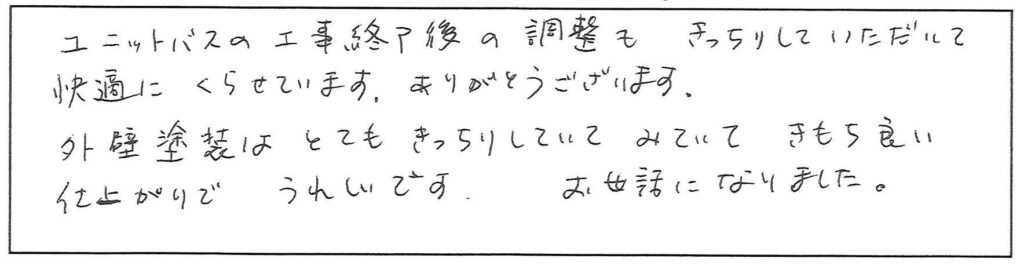 ユニットバスの工事終了後の調整も きっちりしていただいて
快適に くらせています。ありがとうございます。
外壁塗装は とても きっちりしていて みていて きもち良い
仕上がりで うれしいです. お世話になりました。